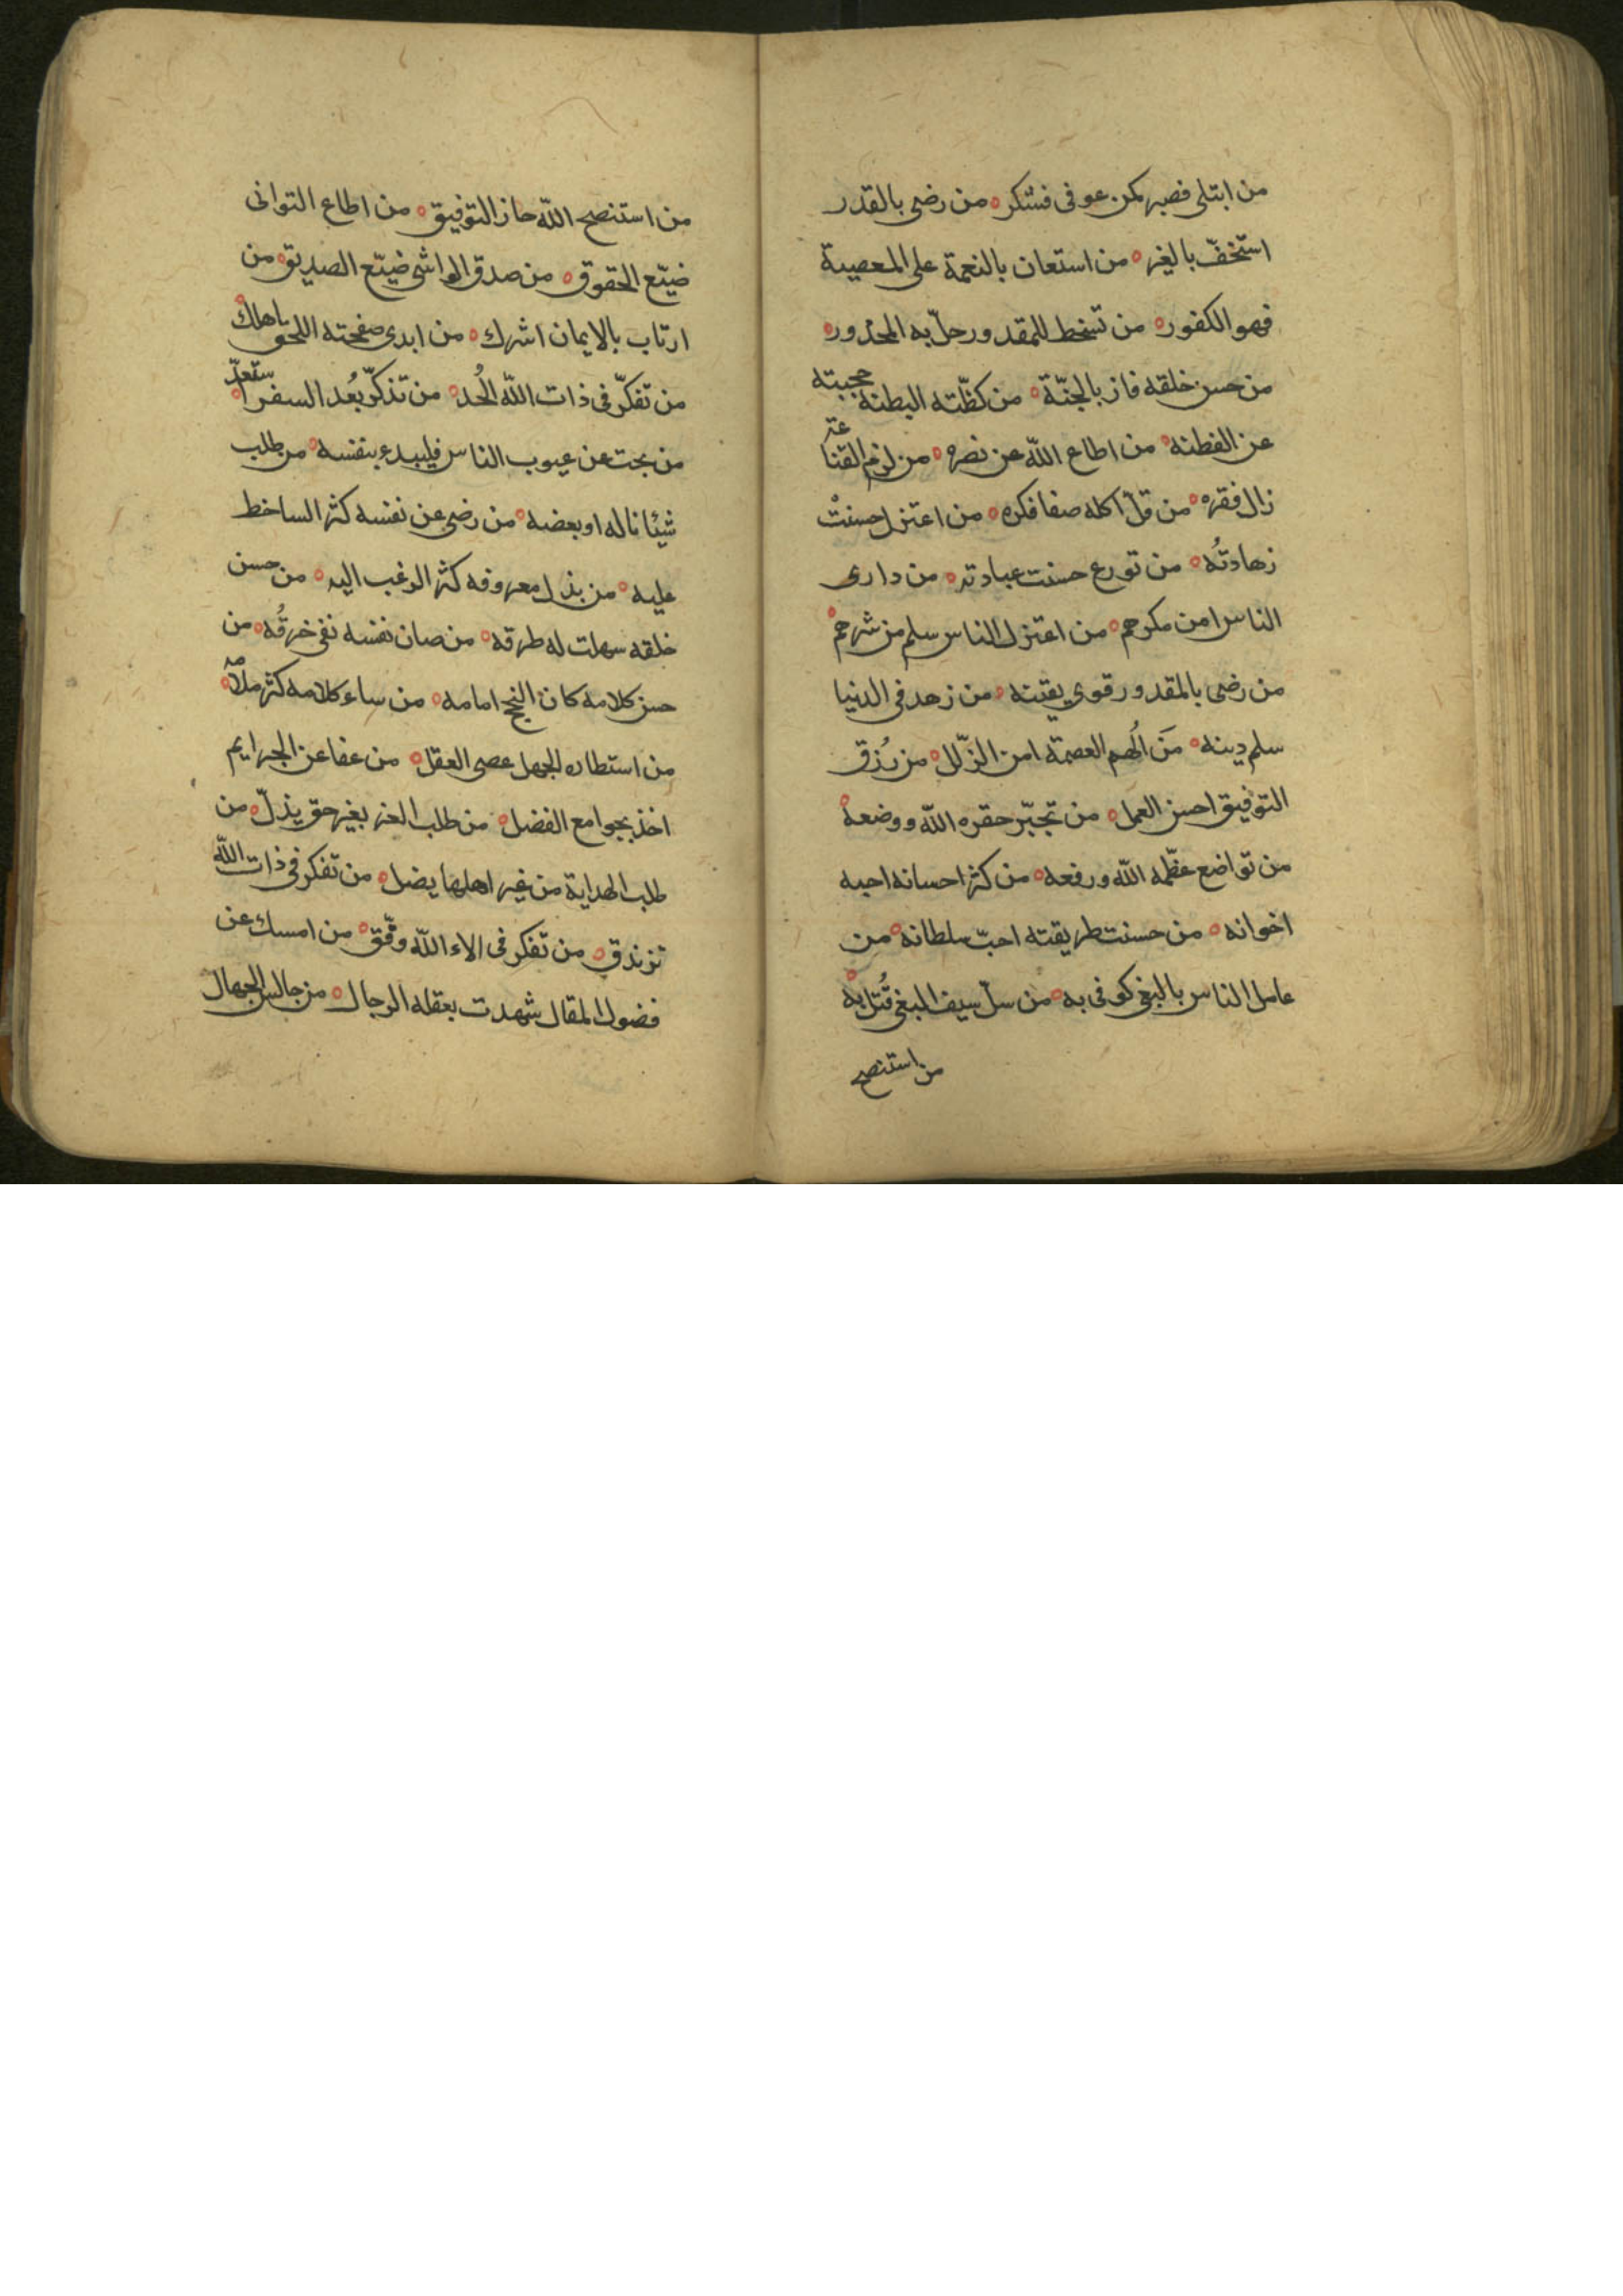 من ابتلى فصبر كمن عوفى فشكر ۰ من رضى بالقدر
استخفّ بالغير ۰ من استعان بالنعمة على المعصية
فهو الكفور ۰ من تسخط للمقدور حلّ به المحذور ۰
من حسن خلقه فاز بالجنّة ۰ من كظّته البطنة حجبته
عن الفطنه ۰ من اطاع الله عن نصره ۰ من لزم القناعة
زال فقره ۰ من قلّ اكله صفا فكره ۰ من اعتزل حسنتْ
زهادتُه ۰ من تورع حسنت عبادته ۰ من دارى
الناس امن مكرهم ۰ من اعتزل الناس سلم من شرهم ۰
من رضى بالمقدور قوى يقينه ۰ من زهد فى الدنيا
سلم دينه ۰ مَن اُلهم العصمة امن الزّلل ۰ من رُزق
التوفيق احسن العمل ۰ من تجبّر حقره الله ووضعه ۰
من تواضع عظّمه الله ورفعه ۰ من كثر احسانه احبه
اخوانه ۰ من حسنت طريقته احبّ سلطانه ۰ من
عامل الناس بالبغى كوفى به ۰ من سلّ سيف البغى قُتل به ۰
من استنصح
من استنصح الله حاز التوفيق ۰ من اطاع التوانى
ضيّع الحقوق ۰ من صدق الواشى ضيّع الصديق ۰ من
ارتاب بالايمان اشرك ۰ من ابدى صفحته اللحق هلك ۰
من تفكّر فى ذات الله اُلحد ۰ من تذكّر بُعد السفر استعدّ ۰
من بحث عن عيوب الناس فليبدء بنفسه ۰ من طلب
شيئا ناله او بعضه ۰ من رضى عن نفسه كثر الساخط
عليه ۰ من بذل معروفه كثر الرغب اليه ۰ من حسن
خلقه سهلت له طرقه ۰ من صان نفسه نفى خرقُه ۰ من
حسن كلامه كان النجح امامه ۰ من ساء كلامه كثر ملامه ۰
من استطاره الجهل عصى العقل ۰ من عفا عن الجرايم
اخذ بجوامع الفضل ۰ من طلب العز بغير حق يذلّ ۰ من
طلب الهداية من غير اهلها يضل ۰ من تفكر فى ذات الله
تزندق ۰ من تفكر فى الاء الله وفّق ۰ من امسك عن
فضول المقال شهدت بعقله الرجال ۰ من جالس الجهال